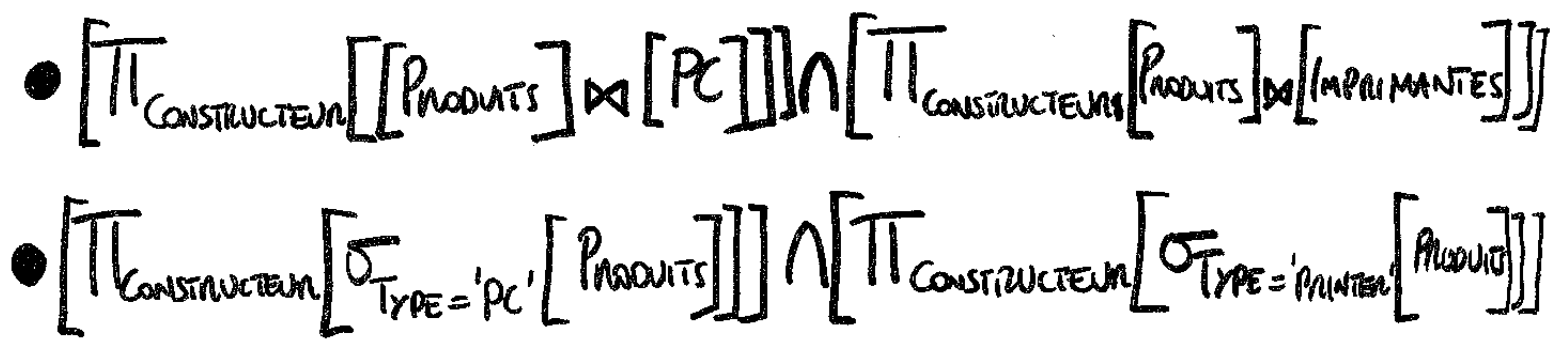 • [π CONSTRUCTEUR [[PRODUITS] ⋈ [PC]]] ∩ [π CONSTRUCTEURS [PRODUITS] ⋈ [IMPRIMANTES]]]
• [π CONSTRUCTEUR [σ TYPE = 'PC' [PRODUITS]]] ∩ [π CONSTRUCTEUR [σ TYPE = 'PRINTER' [PRODUIT]]]